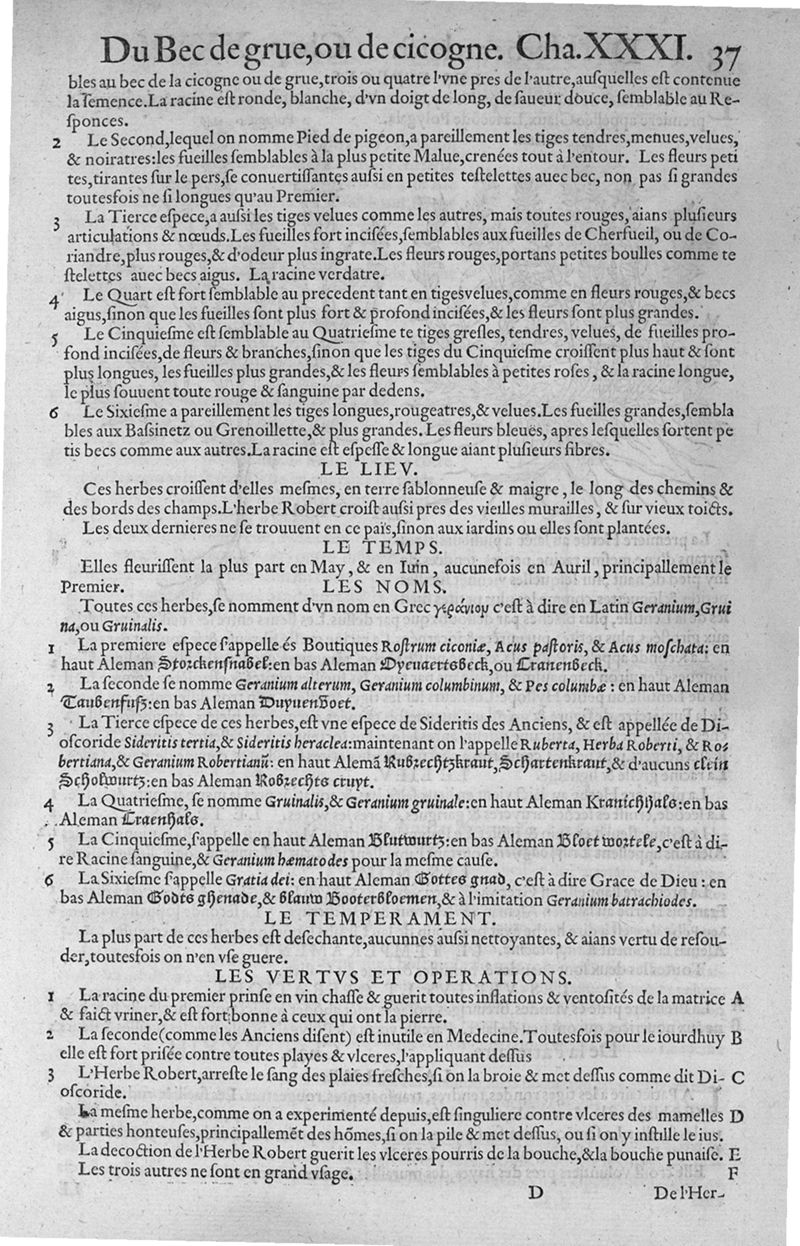 Du Bec de grue, ou de cicogne. Cha. XXXI. 37
bles au bec de la cicogne ou de grue, trois ou quatre l'vne pres de l'autre, ausquelles est contenue
la semence. La racine est ronde, blanche, d'vn doigt de long, de saueur douce, semblable au Re-
sponces.
2 Le Second, lequel on nomme Pied de pigeon, a pareillement les tiges tendres, menues, velues,
& noiratres: les fueilles semblables à la plus petite Malue, crenées tout à l'entour. Les fleurs peti
tes, tirantes sur le pers, se conuertissantes aussi en petites testelettes auec bec, non pas si grandes
toutesfois ne si longues qu'au Premier.
3 La Tierce espece, a aussi les tiges velues comme les autres, mais toutes rouges, aians plusieurs
articulations & nœuds. Les fueilles fort incisées, semblables aux fueilles de Cherfueil, ou de Co-
riandre, plus rouges, & d'odeur plus ingrate. Les fleurs rouges, portans petites boulles comme te
stelettes auec becs aigus. La racine verdatre.
4 Le Quart est fort semblable au precedent tant en tiges velues, comme en fleurs rouges, & becs
aigus, sinon que les fueilles sont plus fort & profond incisées, & les fleurs sont plus grandes.
5 Le Cinquiesme est semblable au Quatriesme te tiges gresles, tendres, velues, de fueilles pro-
fond incisées, de fleurs & branches, sinon que les tiges du Cinquiesme croissent plus haut & sont
plus longues, les fueilles plus grandes, & les fleurs semblables à petites roses, & la racine longue,
le plus souuent toute rouge & sanguine par dedens.
6 Le Sixiesme a pareillement les tiges longues, rougeatres, & velues. Les fueilles grandes, sembla
bles aux Bassinetz ou Grenoillette, & plus grandes. Les fleurs bleues, apres lesquelles sortent pe
tis becs comme aux autres. La racine est espesse & longue aiant plusieurs fibres.
LE LIEV.
Ces herbes croissent d'elles mesmes, en terre sablonneuse & maigre, le long des chemins &
des bords des champs. L'herbe Robert croist aussi pres des vieilles murailles, & sur vieux toicts.
Les deux dernieres ne se trouuent en ce païs, sinon aux iardins ou elles sont plantées.
LE TEMPS.
Elles fleurissent la plus part en May, & en Iuin, aucunefois en Auril, principallement le
Premier. LES NOMS.
Toutes ces herbes, se nomment d'vn nom en Grec γεράνιον c'est à dire en Latin Geranium, Grui
na, ou Gruinalis.
1 La premiere espece s'appelle és Boutiques Rostrum ciconiæ, Acus pastoris, & Acus moschata: en
haut Aleman Storckenschnabel: en bas Aleman Oyeuaertsbeck, ou Cranenbeck.
2 La seconde se nomme Geranium alterum, Geranium columbinum, & Pes columbæ: en haut Aleman
Taubenfusz: en bas Aleman Duyuenvoet.
3 La Tierce espece de ces herbes, est vne espece de Sideritis des Anciens, & est appellée de Di-
oscoride Sideritis tertia, & Sideritis heraclea: maintenant on l'appelle Ruberta, Herba Roberti, & Ro-
bertiana, & Geranium Robertianū: en haut Alemā Rubrechtzkraut, Schartenkraut, & d'aucuns clein
Scholwurtz: en bas Aleman Robrechts cruyt.
4 La Quatriesme, se nomme Gruinalis, & Geranium gruinale: en haut Aleman Kranichhals: en bas
Aleman Craenhals.
5 La Cinquiesme, s'appelle en haut Aleman Blutwurtz: en bas Aleman Bloet wortele, c'est à di-
re Racine sanguine, & Geranium hæmatodes pour la mesme cause.
6 La Sixiesme s'appelle Gratia dei: en haut Aleman Gottes gnad, c'est à dire Grace de Dieu: en
bas Aleman Godts ghenade, & blauw Booterbloemen, & à l'imitation Geranium batrachiodes.
LE TEMPERAMENT.
La plus part de ces herbes est desechante, aucunnes aussi nettoyantes, & aians vertu de resou-
der, toutesfois on n'en vse guere.
LES VERTVS ET OPERATIONS.
1 La racine du premier prinse en vin chasse & guerit toutes inflations & ventosités de la matrice A
& faict vriner, & est fort bonne à ceux qui ont la pierre.
2 La seconde (comme les Anciens disent) est inutile en Medecine. Toutesfois pour le iourdhuy B
elle est fort prisée contre toutes playes & vlceres, l'appliquant dessus
3 L'Herbe Robert, arreste le sang des plaies fresches, si on la broie & met dessus comme dit Di- C
oscoride.
La mesme herbe, comme on a experimenté depuis, est singuliere contre vlceres des mamelles D
& parties honteuses, principallemēt des hōmes, si on la pile & met dessus, ou si on y instille le ius.
La decoction de l'Herbe Robert guerit les vlceres pourris de la bouche, & la bouche punaise. E
Les trois autres ne sont en grand vsage. F
D De l'Her-